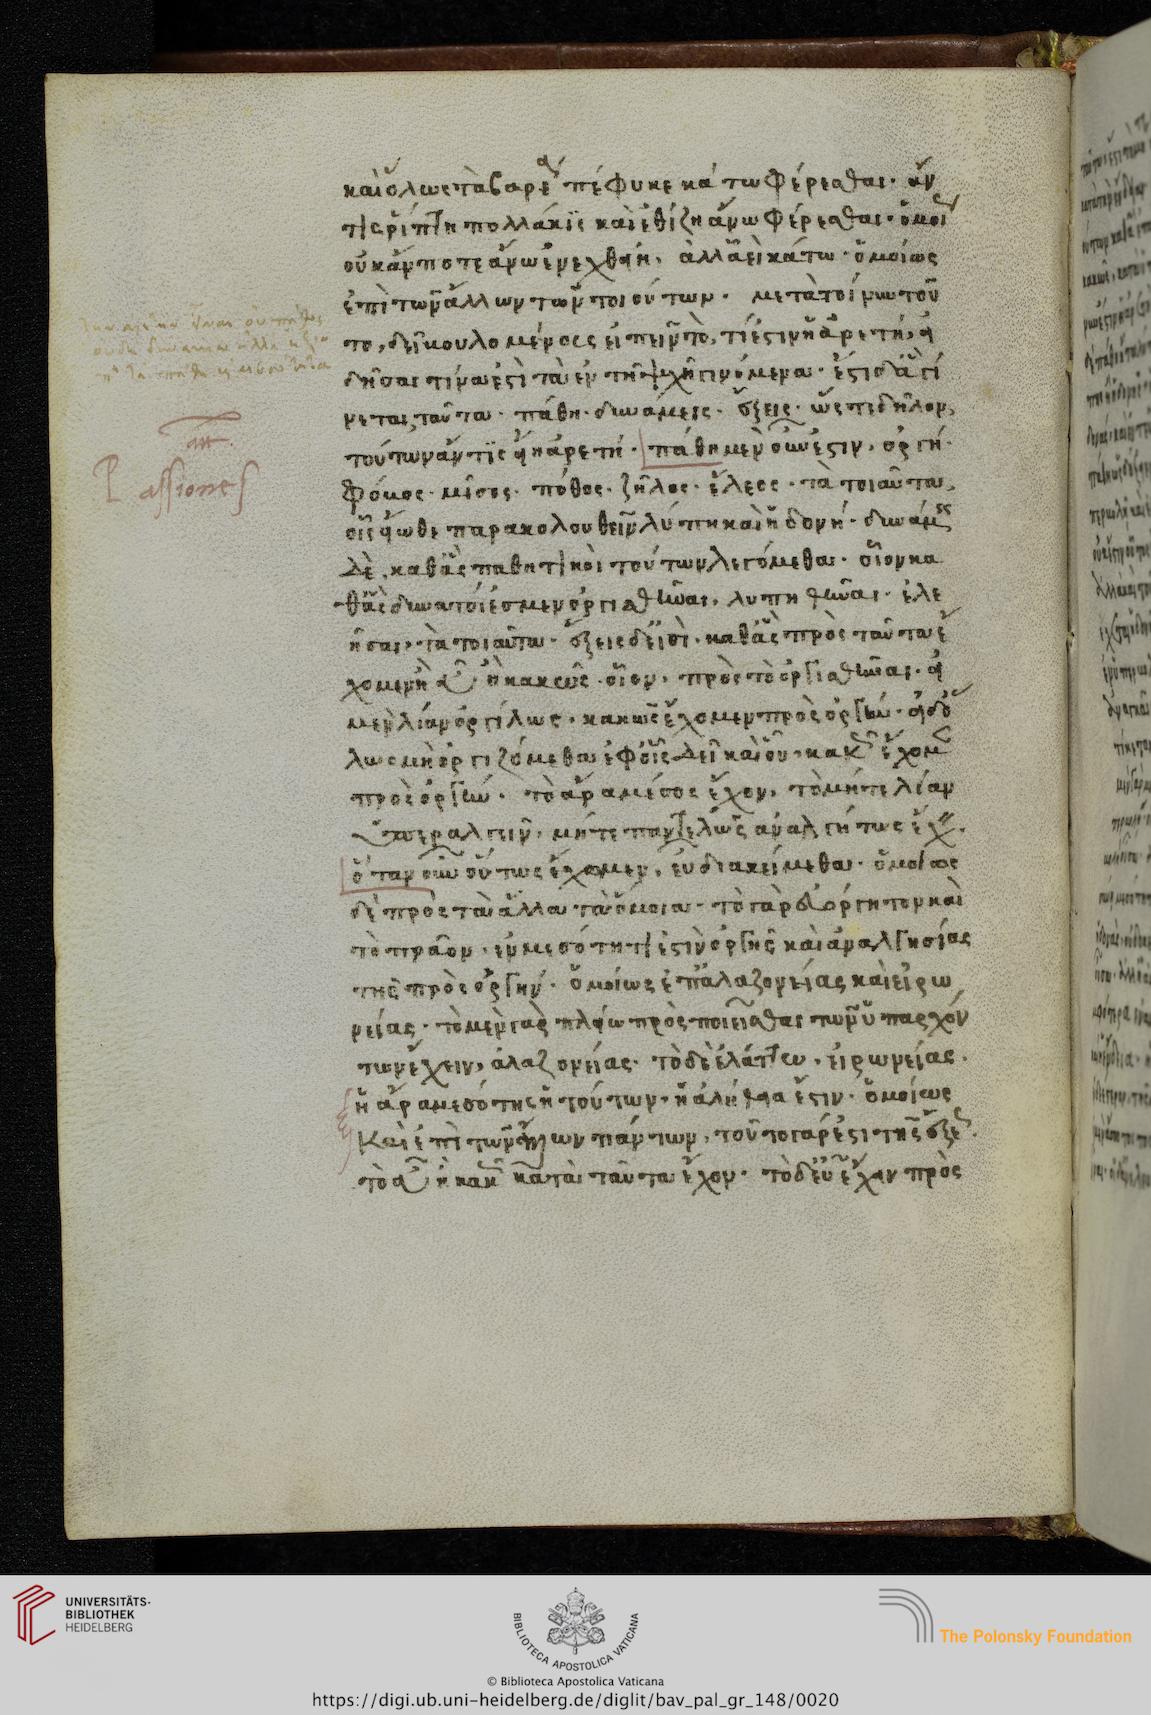 καὶ ὅλως τὰ βαρέα πέφυκε κάτω φέρεσθαι· ἄν
τις ῥίπτῃ πολλάκις καὶ ἐθίζῃ ἄνω φέρεσθαι· ὅμοι
οὐκ ἄν ποτε ἄνω ἐνεχθῇ, ἀλλ' ἀεὶ κάτω· ὁμοίως
ἐπὶ τῶν ἄλλων τῶν τοιούτων· μετὰ τοίνυν τοῦ
το, δεῖ βουλομένοις εἰπεῖν τὸ, τί ἐστιν ἡ ἀρετή,
δῆσαι τίνα ἐστὶ τὰ ἐν τῇ ψυχῇ γινόμενα· ἔστι δὲ ἃ γί
νεται, ταῦτα· πάθη· δυνάμεις· ἕξεις· ὥστε δῆλον,
τούτων ἄν τις εἴη ἀρετή· πάθη μὲν οὖν ἐστιν, ὀργή·
φόβος· μῖσος· πόθος· ζῆλος· ἔλεος· τὰ τοιαῦτα,
οἷς εἴωθε παρακολουθεῖν λύπη καὶ ἡδονή· δυνάμεις
δὲ, καθ' ἃς παθητικοὶ τούτων λεγόμεθα· οἷον κα
θ' ἃς δυνατοί ἐσμεν ὀργισθῆναι, λυπηθῆναι· ἐλε
ῆσαι, τὰ τοιαῦτα· ἕξεις δέ εἰσὶ, καθ' ἃς πρὸς ταῦτα ἔ
χομεν εὖ ἢ κακῶς· οἷον, πρὸς τὸ ὀργισθῆναι· εἰ
μὲν λίαν ὀργίλως, κακῶς ἔχομεν πρὸς ὀργήν· εἰ δ' ὅ
λως μὴ ὀργιζόμεθα ἐφ' οἷς δεῖ καὶ οὕ, κακῶς ἔχομεν
πρὸς ὀργήν· τὸ ἄρα μέσως ἔχον, τὸ μήτε λίαν
ὑπεραλγεῖν, μήτε παντελῶς ἀναλγήτως ἔχειν.
ὅταν οὖν οὕτως ἔχωμεν, εὖ διακείμεθα· ὁμοίως
δὲ πρὸς τὰ ἄλλα τὰ ὅμοια· τὸ γὰρ εὐόργητον καὶ
τὸ πρᾶον, ἐν μεσότητί ἐστιν ὀργῆς καὶ ἀναλγησίας
τῆς πρὸς ὀργήν· ὁμοίως ἐπ' ἀλαζονείας καὶ εἰρω
νείας· τὸ μὲν γὰρ πλείω προσποιεῖσθαι τῶν ὑπαρχόν
των ἔχειν, ἀλαζονείας· τὸ δὲ ἐλάττω, εἰρωνείας·
ἡ ἄρα μεσότης ἡ τούτων, ἡ ἀλήθεια ἐστιν· ὁμοίως
Καὶ ἐπὶ τῶν ἄλλων πάντων, τοῦτο γάρ ἐστι τῆς ἕξεως.
τὸ εὖ ἢ κακῶς κατὰ ταῦτα ἔχον· τὸ δ' εὖ ἔχειν πρὸς
Passiones
UNIVERSITÄTS-
BIBLIOTHEK
HEIDELBERG
BIBLIOTECA APOSTOLICA VATICANA
The Polonsky Foundation
© Biblioteca Apostolica Vaticana
https://digi.ub.uni-heidelberg.de/diglit/bav_pal_gr_148/0020